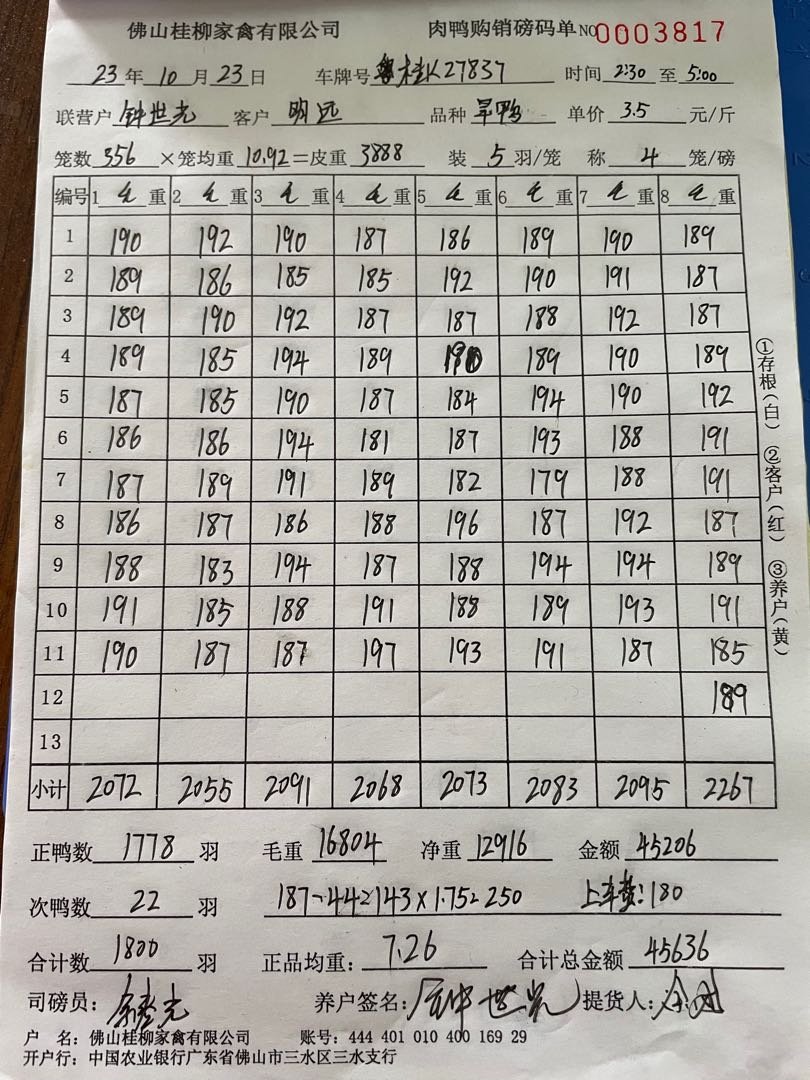 佛山桂柳家禽有限公司 肉鸭购销磅码单 NO 0003817
23年10月23日 车牌号 桂K27837 时间 2:30 至 5:00
联营户 钟世光 客户 明远 品种 旱鸭 单价 3.5 元/斤
笼数 356 ×笼均重 10.92 =皮重 3888 装 5 羽/笼 称 4 笼/磅
编号 1 毛 重 2 毛 重 3 毛 重 4 毛 重 5 毛 重 6 毛 重 7 毛 重 8 毛 重
1 190 192 190 187 186 189 190 189
2 189 186 185 185 192 190 191 187
3 189 190 192 187 187 188 192 187
4 189 185 194 189 190 189 190 189
5 187 185 190 187 184 194 190 192
6 186 186 194 181 187 193 188 191
7 187 189 191 189 182 179 188 191
8 186 187 186 188 196 187 192 187
9 188 183 194 187 188 194 194 189
10 191 185 188 191 188 189 193 191
11 190 187 187 197 193 191 187 185
12 189
13
小计 2072 2055 2091 2068 2073 2083 2095 2267
①存根(白) ②客户(红) ③养户(黄)
正鸭数 1778 羽 毛重 16804 净重 12916 金额 45206
次鸭数 22 羽 187-44=143×1.75=250 上车费:180
合计数 1800 羽 正品均重: 7.26 合计总金额 45636
司磅员: 养户签名: 钟世光 提货人:
户 名: 佛山桂柳家禽有限公司 账号: 444 401 010 400 169 29
开户行: 中国农业银行广东省佛山市三水区三水支行